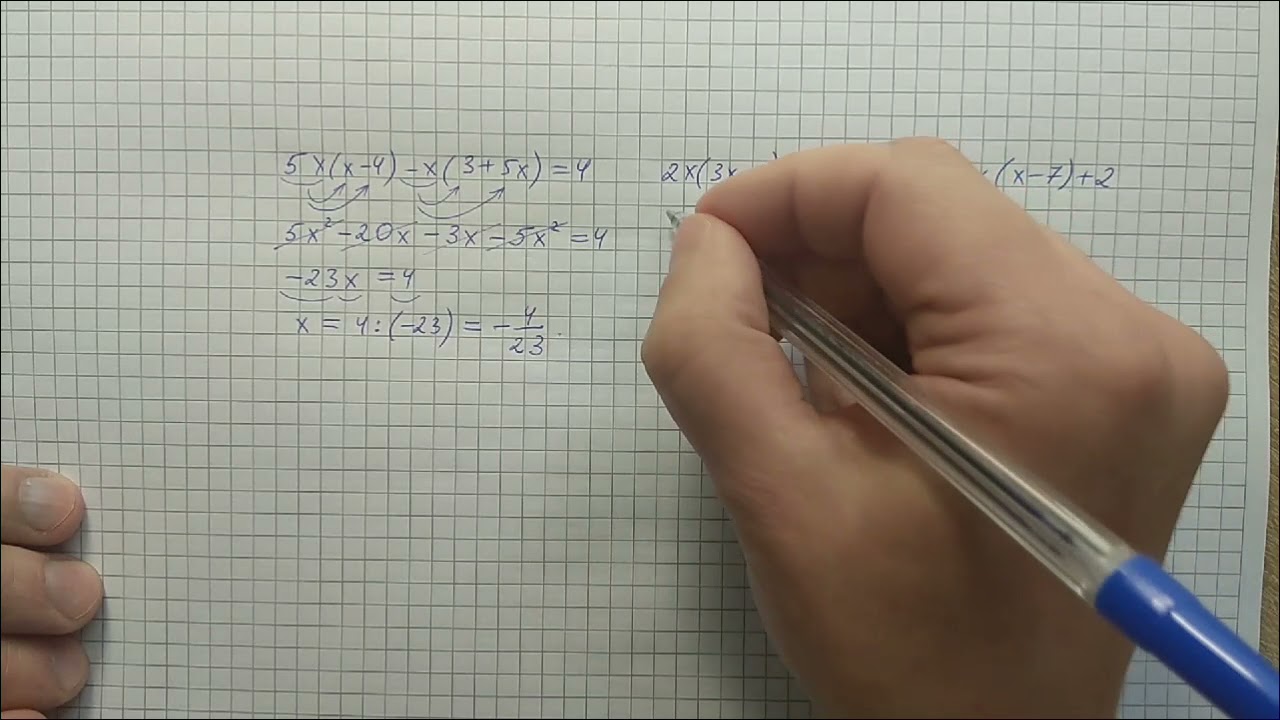 5x(x-4)-x(3+5x)=4
5x²-20x-3x-5x²=4
-23x=4
x=4:(-23)=-4/23.
2x(3x
(x-7)+2